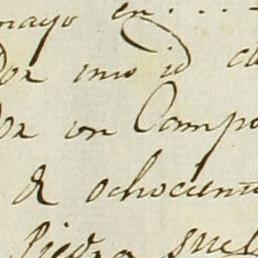 mayo en . . . .
por uno id
por un Campo
& ochocient
Piedra suel